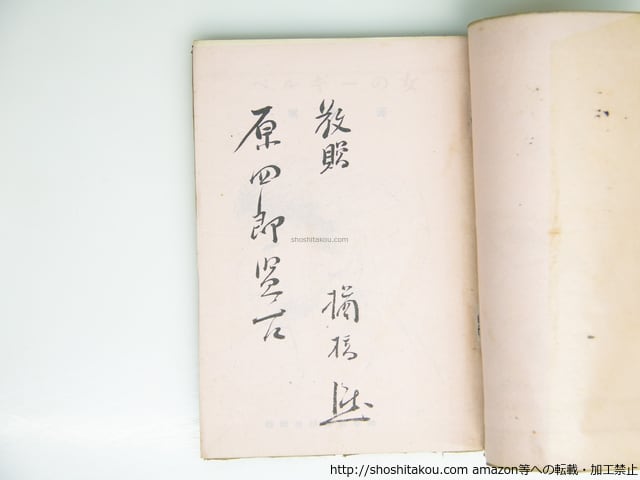 ベルギーの女
敬贈 楢橋渡
原四郎
shoshitakou.com
http://shoshitakou.com amazon等への転載・加工禁止